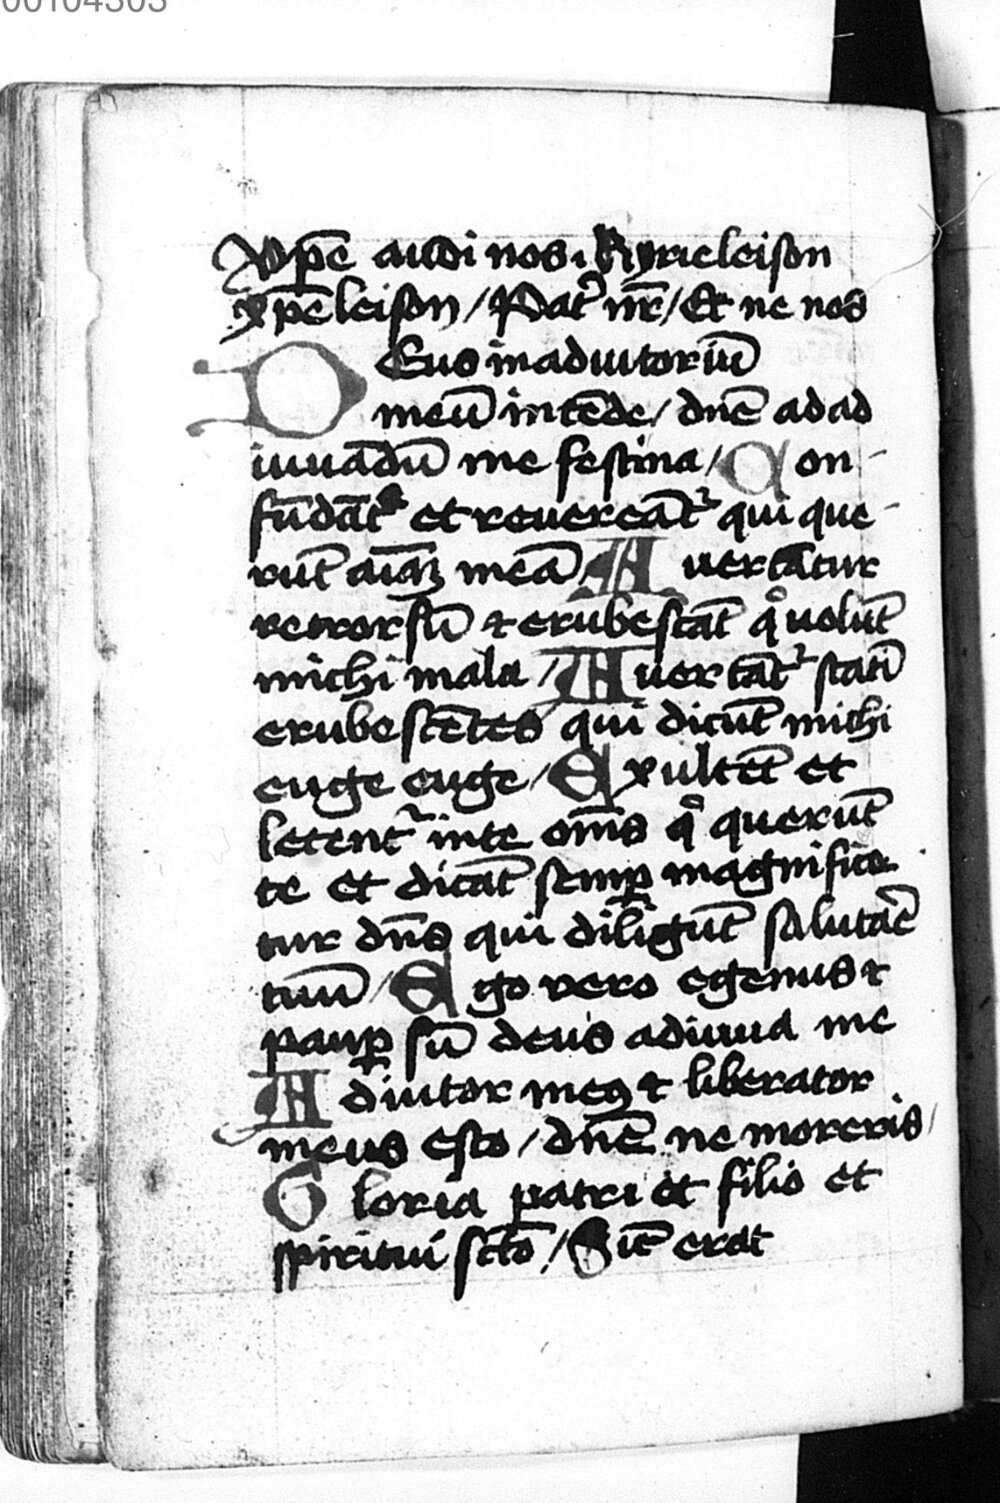 00104303
Xp̄e audi nos. Kyrieleison
xp̄eleison / Pat͛ nr̄ / Et ne nos
Deus in adiutoriū
meū intēde / dn̄e ad ad
iuuādū me festina / Con-
fūdāt͛ et reuereāt͛ qui que-
rūt aīaꝫ meā Auertātur
retrorsū ⁊ erubescāt qͦ uolūt
michi mala / Auertāt͛ statī
erubescētes qui dicūt michi
euge euge / Exultēt et
letent͛ in te om̄s qͦ querūt
te et dicāt semꝑ magnifice
tur dn̄s qui diligūt salutāē
tuū / Ego vero egenus ⁊
pauꝑ sū deus adiuua me
Adiutor meꝰ ⁊ liberator
meus esto / dn̄e ne moreris /
Gloria patri et filio et
spiritui sc̄to / Sic̄ erat